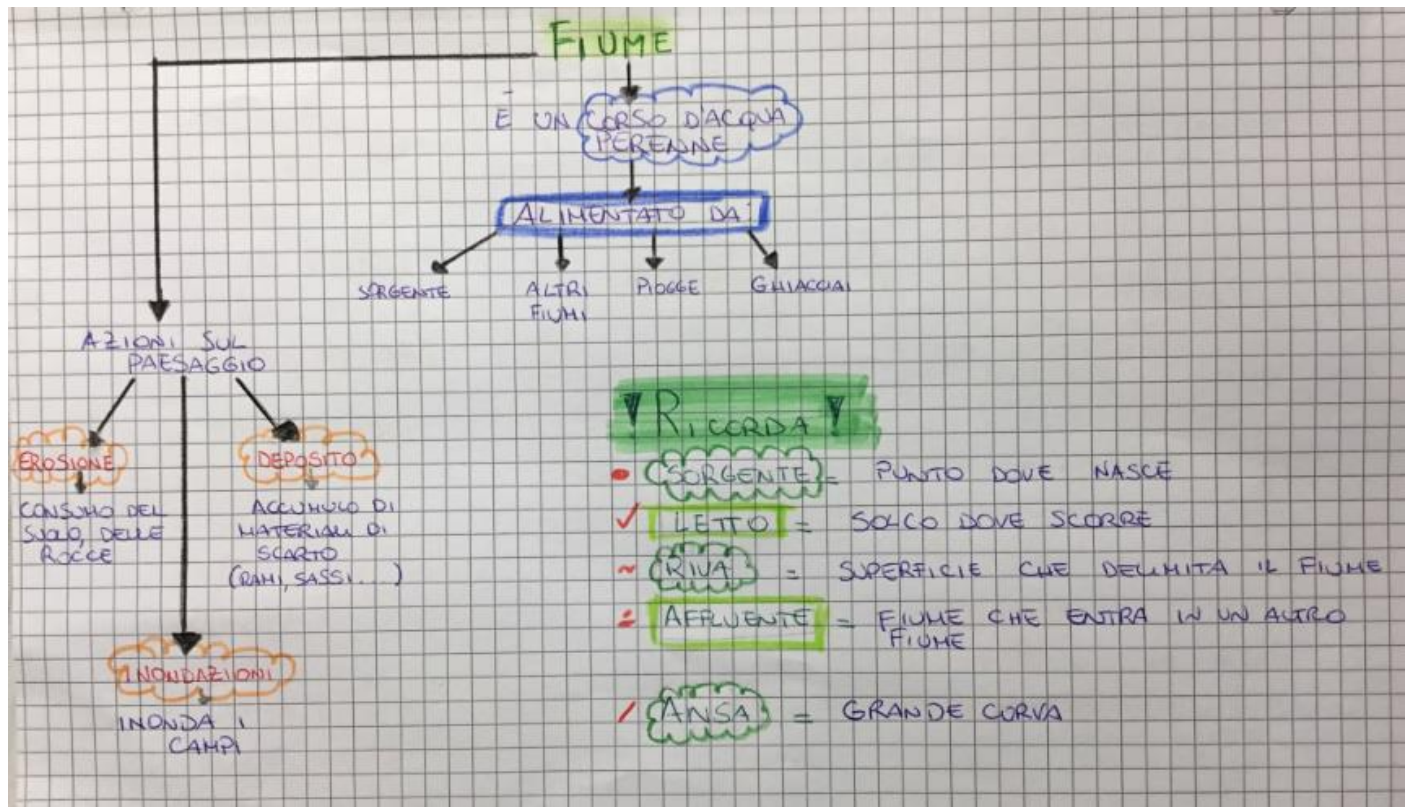 FIUME
È UN CORSO D'ACQUA
PERENNE
ALIMENTATO DA:
SORGENTE
ALTRI
FIUMI
PIOGGE
GHIACCIAI
AZIONI SUL
PAESAGGIO
EROSIONE
CONSUMO DEL
SUOLO, DELLE
ROCCE
DEPOSITO
ACCUMULO DI
MATERIALI DI
SCARTO
(RAMI, SASSI...)
INONDAZIONI
INONDA I
CAMPI
! RICORDA !
SORGENTE = PUNTO DOVE NASCE
LETTO = SOLCO DOVE SCORRE
RIVA = SUPERFICIE CHE DELIMITA IL FIUME
AFFLUENTE = FIUME CHE ENTRA IN UN ALTRO
FIUME
ANSA = GRANDE CURVA